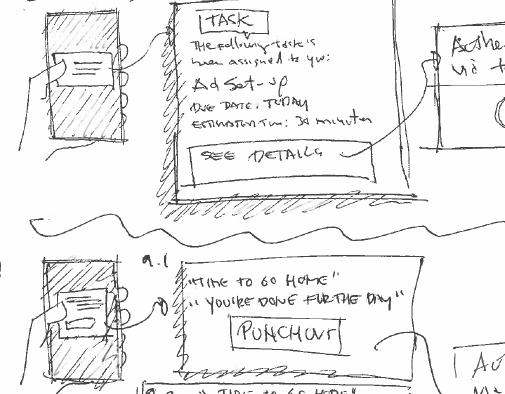 TASK
The following task is
been assigned to you:
Ad Set-up
DUE DATE: TODAY
: 30 minutes
SEE DETAILS
9.1
"TIME TO GO HOME"
"YOU'RE DONE FOR THE DAY"
PUNCHOUT
"TIME TO GO HOME"